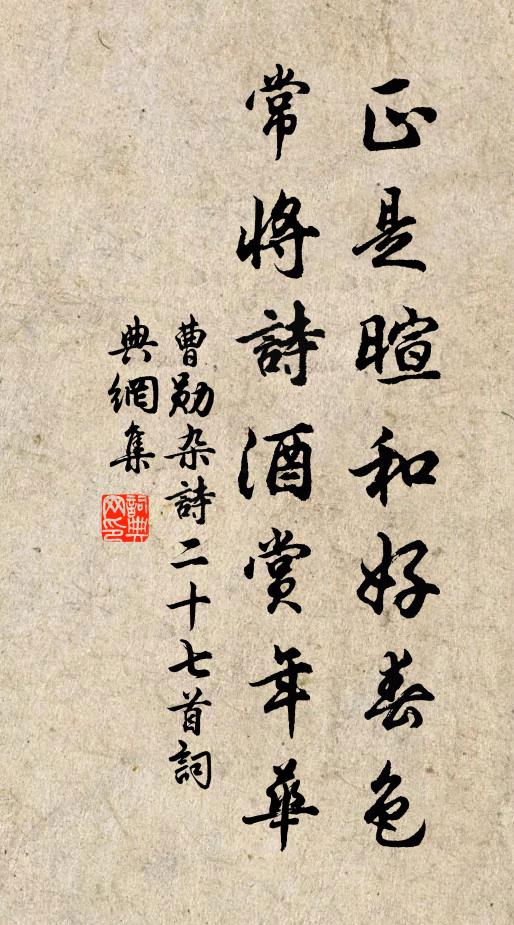 正是暄和好春色
常將詩酒賞年華
曹勛杂詩二十七首詞
典網集
詞典
网印